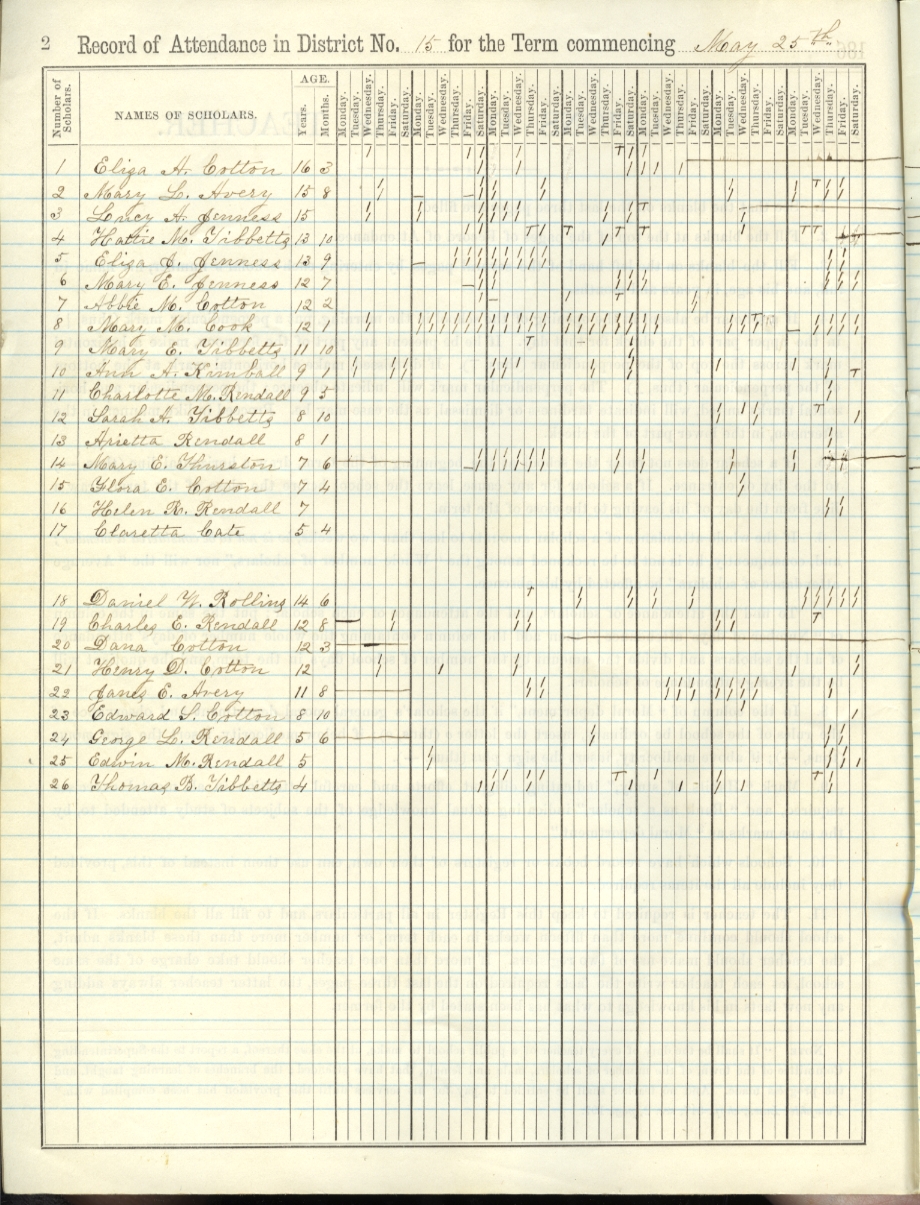 2 Record of Attendance in District No. 15 for the Term commencing May 25th
Number of Scholars. NAMES OF SCHOLARS. AGE. Years. Months. Monday. Tuesday. Wednesday. Thursday. Friday. Saturday. Monday. Tuesday. Wednesday. Thursday. Friday. Saturday. Monday. Tuesday. Wednesday. Thursday. Friday. Saturday. Monday. Tuesday. Wednesday. Thursday. Friday. Saturday. Monday. Tuesday. Wednesday. Thursday. Friday. Saturday. Monday. Tuesday. Wednesday. Thursday. Friday. Saturday. Monday. Tuesday. Wednesday. Thursday. Friday. Saturday.
1 Eliza A. Cotton 16 3
2 Mary L. Avery 15 8
3 Lucy A. Jenness 15
4 Hattie M. Tibbetts 13 10
5 Eliza J. Jenness 13 9
6 Mary E. Jenness 12 7
7 Abbie M. Cotton 12 2
8 Mary M. Cook 12 1
9 Mary E. Tibbetts 11 10
10 Ann A. Kimball 9 1
11 Charlotte M. Rendall 9 5
12 Sarah A. Tibbetts 8 10
13 Arietta Rendall 8 1
14 Mary E. Thurston 7 6
15 Flora E. Cotton 7 4
16 Helen R. Rendall 7
17 Claretta Cate 5 4
18 Daniel W. Rollins 14 6
19 Charles E. Rendall 12 8
20 Dana Cotton 12 3
21 Henry D. Cotton 12
22 James E. Avery 11 8
23 Edward S. Cotton 8 10
24 George L. Rendall 5 6
25 Edwin M. Rendall 5
26 Thomas B. Tibbetts 4